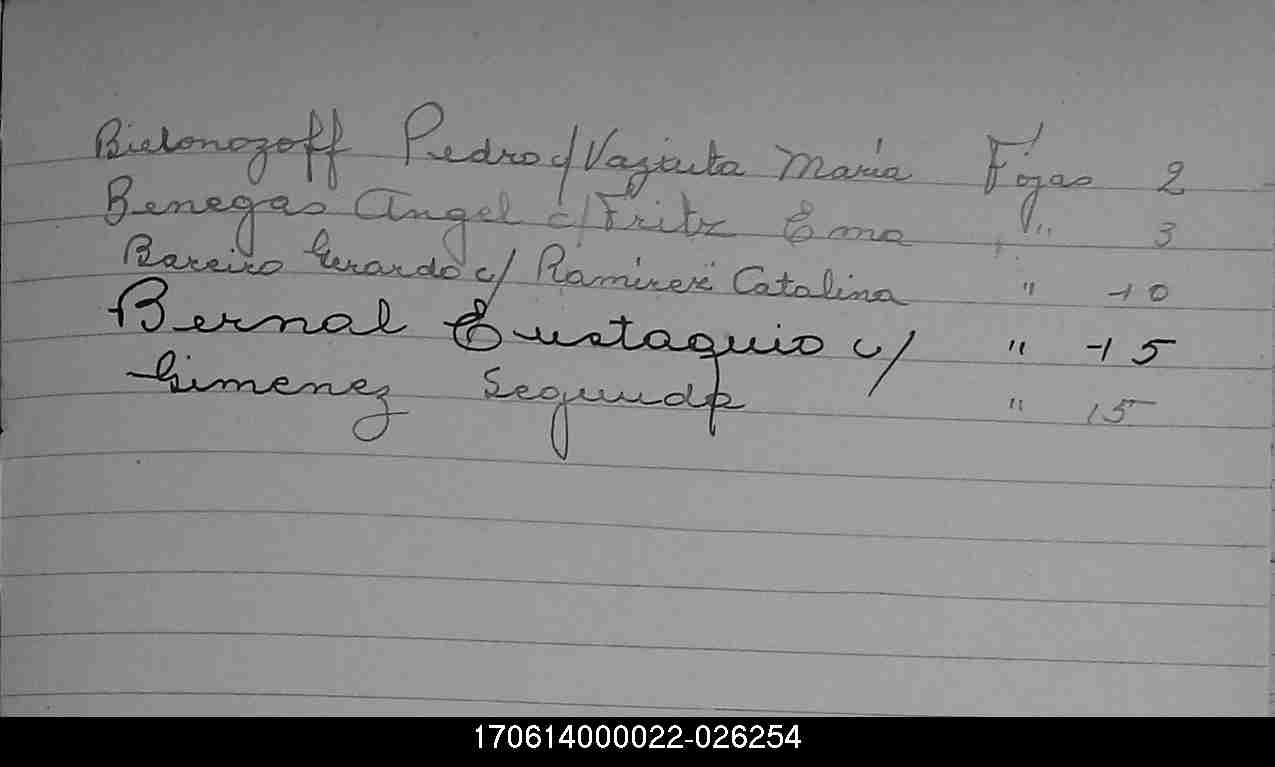 Bielonozoff Pedro c/ Vaziuta María Fojas 2
Benegas Angel c/ Fritz Ema " 3
Bareiro Gerardo c/ Ramirez Catalina " 10
Bernal Eustaquio c/ " 15
Gimenez Segunda " 15
170614000022-026254